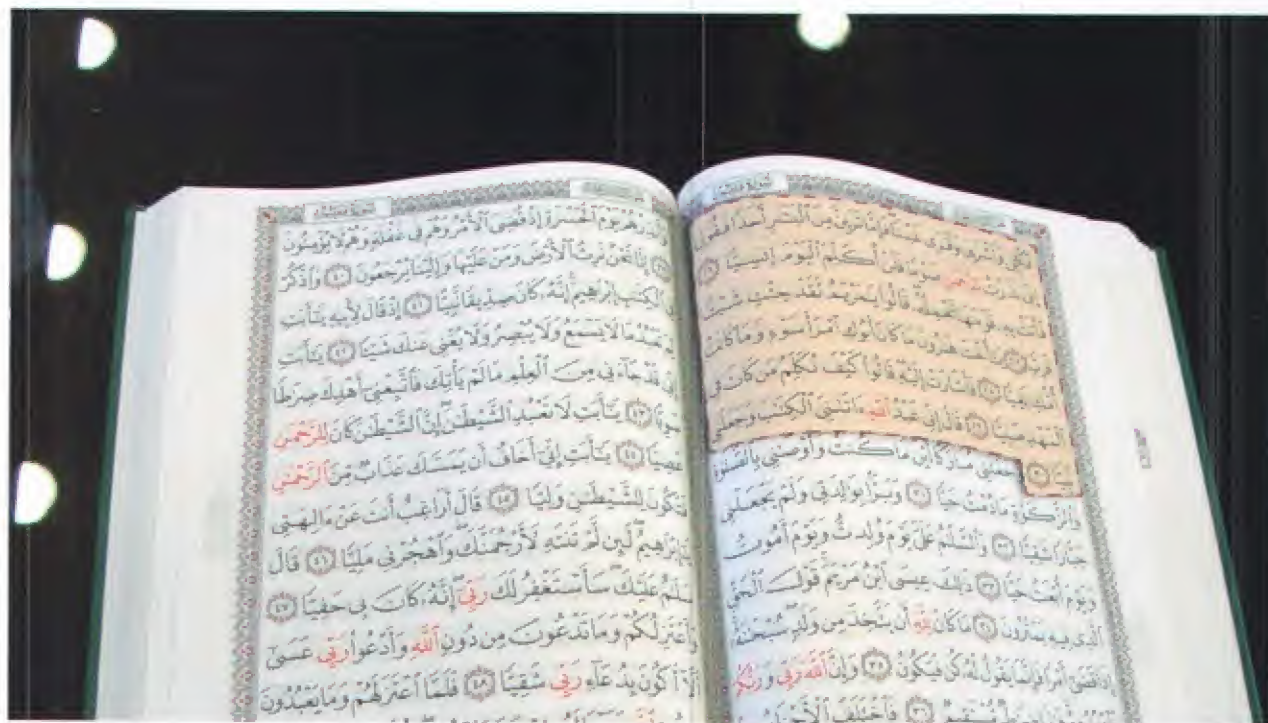 فَكُلِي وَٱشْرَبِي وَقَرِّي عَيْنًا فَإِمَّا تَرَيِنَّ مِنَ ٱلْبَشَرِ أَحَدًا فَقُولِي
إِنِّي نَذَرْتُ لِلرَّحْمَٰنِ صَوْمًا فَلَنْ أُكَلِّمَ ٱلْيَوْمَ إِنسِيًّا ٢٦
فَأَتَتْ بِهِۦ قَوْمَهَا تَحْمِلُهُۥ قَالُوا۟ يَٰمَرْيَمُ لَقَدْ جِئْتِ شَيْـًٔا
فَرِيًّا ٢٧ يَٰٓأُخْتَ هَٰرُونَ مَا كَانَ أَبُوكِ ٱمْرَأَ سَوْءٍ وَمَا كَانَتْ
أُمُّكِ بَغِيًّا ٢٨ فَأَشَارَتْ إِلَيْهِ قَالُوا۟ كَيْفَ نُكَلِّمُ مَن كَانَ فِي
ٱلْمَهْدِ صَبِيًّا ٢٩ قَالَ إِنِّي عَبْدُ ٱللَّهِ ءَاتَىٰنِيَ ٱلْكِتَٰبَ وَجَعَلَنِي
نَبِيًّا ٣٠ وَجَعَلَنِي مُبَارَكًا أَيْنَ مَا كُنتُ وَأَوْصَٰنِي بِٱلصَّلَوٰةِ
وَٱلزَّكَوٰةِ مَا دُمْتُ حَيًّا ٣١ وَبَرًّۢا بِوَٰلِدَتِي وَلَمْ يَجْعَلْنِي
جَبَّارًا شَقِيًّا ٣٢ وَٱلسَّلَٰمُ عَلَيَّ يَوْمَ وُلِدتُّ وَيَوْمَ أَمُوتُ
وَيَوْمَ أُبْعَثُ حَيًّا ٣٣ ذَٰلِكَ عِيسَى ٱبْنُ مَرْيَمَ قَوْلَ ٱلْحَقِّ
ٱلَّذِي فِيهِ يَمْتَرُونَ ٣٤ مَا كَانَ لِلَّهِ أَن يَتَّخِذَ مِن وَلَدٍ سُبْحَٰنَهُۥٓ
إِذَا قَضَىٰٓ أَمْرًا فَإِنَّمَا يَقُولُ لَهُۥ كُن فَيَكُونُ ٣٥ وَإِنَّ ٱللَّهَ رَبِّي وَرَبُّكُمْ
مُّسْتَقِيمٌ ٣٦ فَٱخْتَلَفَ ٱلْأَحْزَابُ
سُورَةُ مَرْيَمَ
وَأَنذِرْهُمْ يَوْمَ ٱلْحَسْرَةِ إِذْ قُضِيَ ٱلْأَمْرُ وَهُمْ فِي غَفْلَةٍ وَهُمْ لَا يُؤْمِنُونَ
٣٩ إِنَّا نَحْنُ نَرِثُ ٱلْأَرْضَ وَمَنْ عَلَيْهَا وَإِلَيْنَا يُرْجَعُونَ ٤٠ وَٱذْكُرْ
فِي ٱلْكِتَٰبِ إِبْرَٰهِيمَ إِنَّهُۥ كَانَ صِدِّيقًا نَّبِيًّا ٤١ إِذْ قَالَ لِأَبِيهِ يَٰٓأَبَتِ
لِمَ تَعْبُدُ مَا لَا يَسْمَعُ وَلَا يُبْصِرُ وَلَا يُغْنِي عَنكَ شَيْـًٔا ٤٢ يَٰٓأَبَتِ
إِنِّي قَدْ جَآءَنِي مِنَ ٱلْعِلْمِ مَا لَمْ يَأْتِكَ فَٱتَّبِعْنِيٓ أَهْدِكَ صِرَٰطًا
سَوِيًّا ٤٣ يَٰٓأَبَتِ لَا تَعْبُدِ ٱلشَّيْطَٰنَ إِنَّ ٱلشَّيْطَٰنَ كَانَ لِلرَّحْمَٰنِ
عَصِيًّا ٤٤ يَٰٓأَبَتِ إِنِّيٓ أَخَافُ أَن يَمَسَّكَ عَذَابٌ مِّنَ ٱلرَّحْمَٰنِ
فَتَكُونَ لِلشَّيْطَٰنِ وَلِيًّا ٤٥ قَالَ أَرَاغِبٌ أَنتَ عَنْ ءَالِهَتِي
يَٰٓإِبْرَٰهِيمُ لَئِن لَّمْ تَنتَهِ لَأَرْجُمَنَّكَ وَٱهْجُرْنِي مَلِيًّا ٤٦ قَالَ
سَلَٰمٌ عَلَيْكَ سَأَسْتَغْفِرُ لَكَ رَبِّيٓ إِنَّهُۥ كَانَ بِي حَفِيًّا ٤٧
وَأَعْتَزِلُكُمْ وَمَا تَدْعُونَ مِن دُونِ ٱللَّهِ وَأَدْعُوا۟ رَبِّي عَسَىٰٓ
أَلَّآ أَكُونَ بِدُعَآءِ رَبِّي شَقِيًّا ٤٨ فَلَمَّا ٱعْتَزَلَهُمْ وَمَا يَعْبُدُونَ